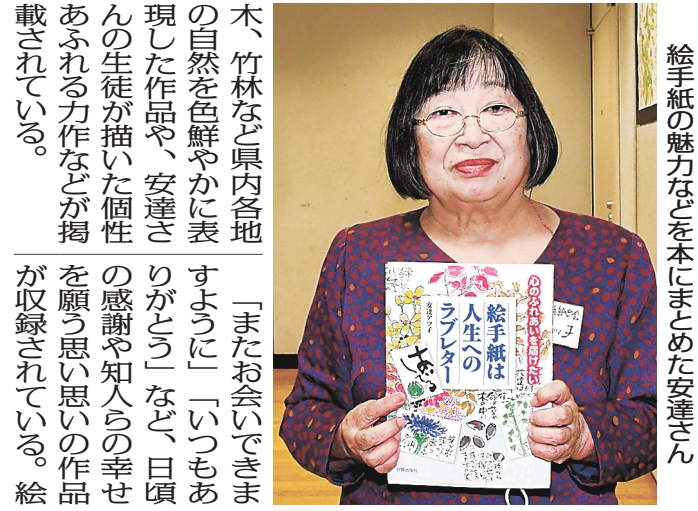 絵手紙の魅力などを本にまとめた安達さん
心のふれあいを届けたい
絵手紙は
人生への
ラブレター
安達アツ子
木、竹林など県内各地
の自然を色鮮やかに表
現した作品や、安達さ
んの生徒が描いた個性
あふれる力作などが掲
載されている。
「またお会いできま
すように」「いつもあ
りがとう」など、日頃
の感謝や知人らの幸せ
を願う思い思いの作品
が収録されている。絵